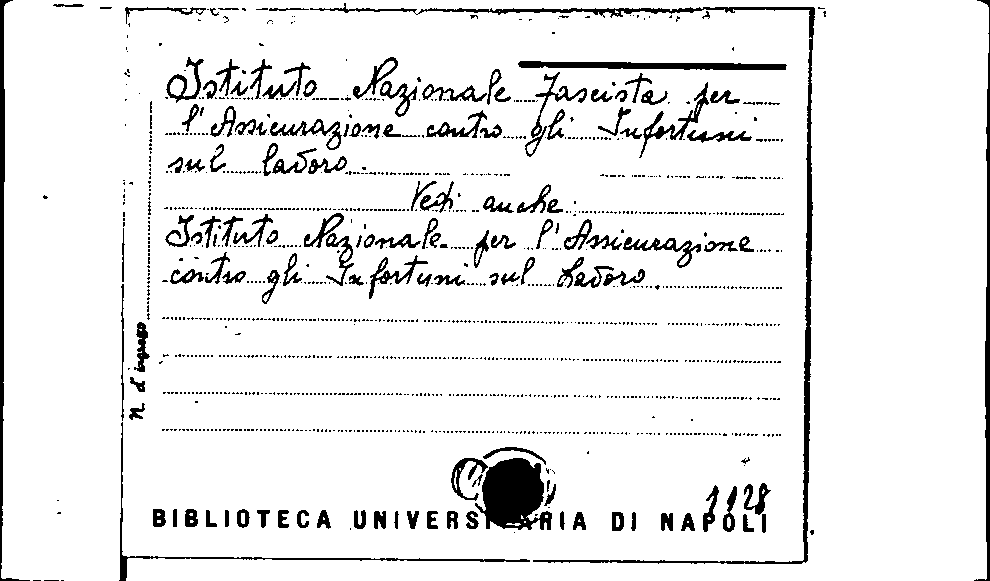 Istituto Nazionale Fascista per
l'Assicurazione contro gli Infortuni
sul lavoro.
Vedi anche:
Istituto Nazionale per l'Assicurazione
contro gli Infortuni sul Lavoro.
N. d'ingresso
1128
BIBLIOTECA UNIVERSITARIA DI NAPOLI